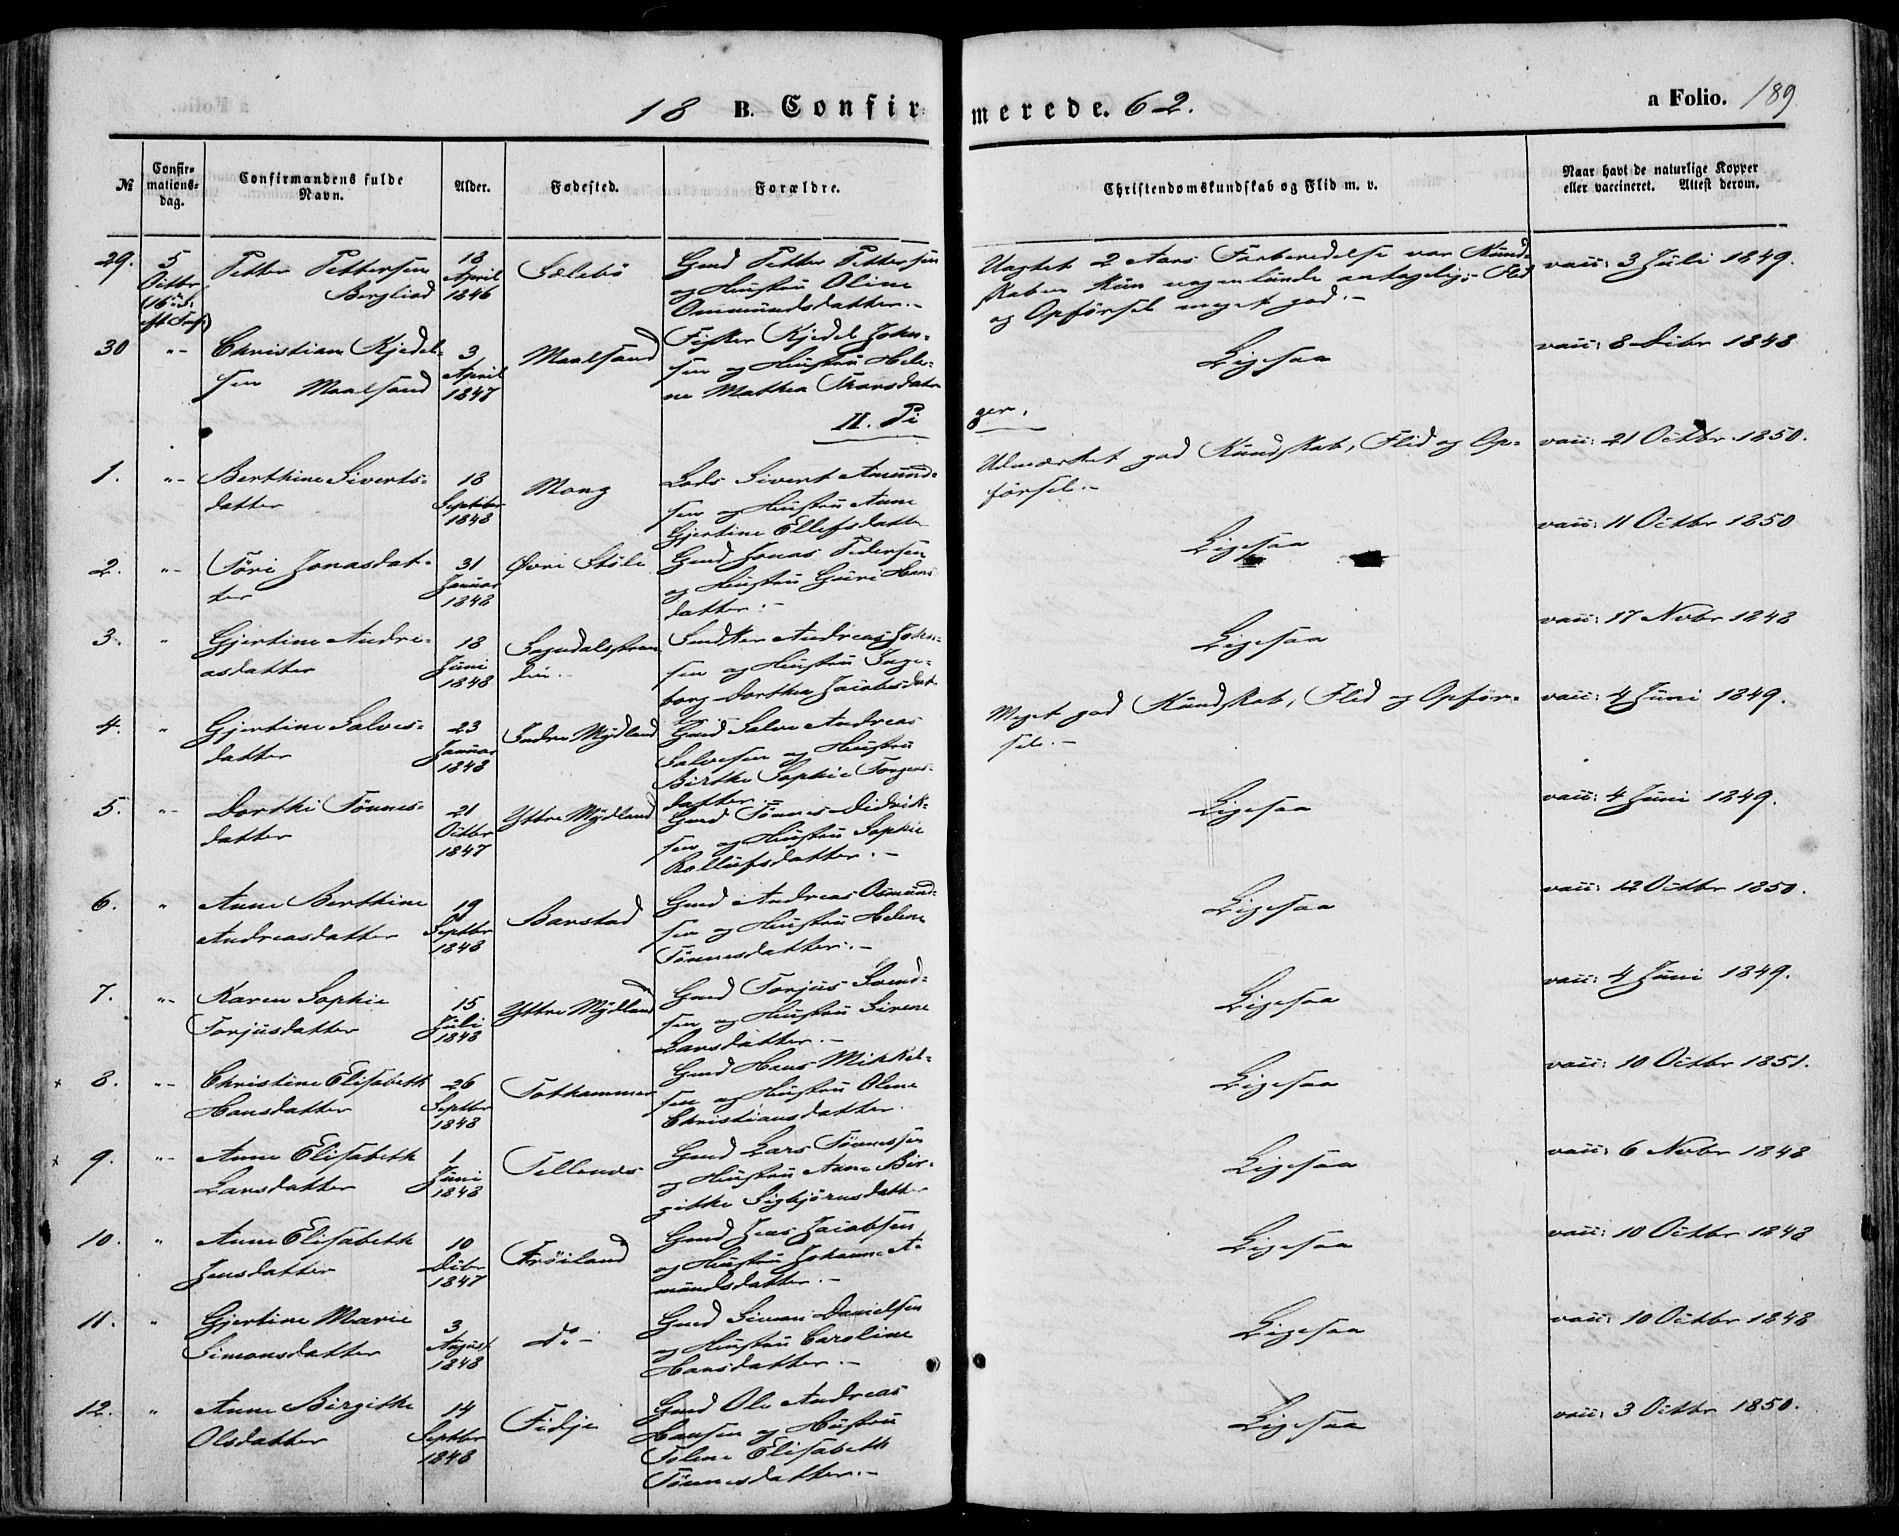 18 B. Confirmerede. 62. a Folio. 189.
№ Confirmationsdag. Confirmandens fulde Navn. Alder. Fødested. Forældre. Christendomskundskab og Flid m. v. Naar havt de naturlige Kopper eller vaccineret. Attest derom.
29. 5 Octbr (16 S. eft Tref) Petter Pettersen Bergliod 18 April 1846 Sælebø Gmd Petter Pettersen og Hustru Oline Ommundsdatter.- Uagtet 2 Aars Forberedelse var Kundskaben kun nogenlunde antagelig; Flid og Opførsel meget god.- vacc: 3 Juli 1849.
30 "- Christian Kjedelsen Maalsand 3 April 1847 Maalsand Fisker Kjedel Johnsen og Hustru Helene Mathea Thorsdatr Ligesaa vacc: 8 Dcbr 1848
II. Piger.
1. "- Berthine Sivertsdatter 18 Septbr 1848 Mong Lods Sivert Amundsen og Hustru Anne Gjertine Ellefsdatter Udmærket god Kundskab, Flid og Opførsel.- vacc: 21 Octbr 1850.
2. "- Jonasdatter 31 Januar 1848 Øvre Støle Gmd Jonas Pedersen og Hustru Guri Hansdatter.- Ligesaa vacc: 11 Octbr 1850
3. " Gjertine Andreasdatter 18 Juni 1848 Sogndalsstranden.- Smed Andreas Johnsen og Hustru Ingeborg Dorthea Jacobsdat Ligesaa vacc: 17 Novbr 1848
4. " Gjertine Salvesdatter 23 Januar 1848 Indre Mydland Gmd Salve Andreas Salvesen og Hustru Birthe Sophie Torgersdatter.- Meget god Kundskab, Flid og Opførsel.- vacc: 4 Juni 1849.
5. "- Dorthe Tønnesdatter 21 Octbr 1847 Yttre Mydland Gmd Tønnes Didriksen og Hustru Sophie Rollufsdatter.- Ligesaa vacc: 4 Juni 1849.
6. " Anne Berthine Andreasdatter 19 Septbr 1848 Barstad Gmd Andreas Osmundsen og Hustru Helene Tønnesdatter.- Ligesaa vacc: 12 Octbr 1850.
7. "- Karen Sophie Torjusdatter 15 Juli 1848 Yttre Mydland Gmd Torjus Svendsen og Hustru Sirene Larsdatter.- Ligesaa vacc: 4 Juni 1849.
x 8. "- Christine Elisabeth Hansdatter 26 Septbr 1848 Tothammer Gmd Hans Mikkelsen og Hustru Olene Christiansdatter. Ligesaa vacc: 10 Octbr 1851.
x 9. "- Anne Elisabeth Larsdatter 1 Juni 1848 Tellenæs Gmd Lars Tønnessen og Hustru Anne Birgitte Sigbjørnsdatter Ligesaa vacc: 6 Novbr 1848
10. " Anne Elisabeth Jensdatter 10 Dcbr 1847 Frøiland Gmd Jens Jacobsen og Hustru Johanne Amundsdatter.- Ligesaa vacc: 10 Octbr 1848
11. " Gjertine Marie Simonsdatter 3 August 1848 do - Gmd Simon Danielsen og Hustru Caroline Hansdatter.- Ligesaa vacc: 10 Octbr 1848
12. " Anne Birgitte Olsdatter 14 Septbr 1848 Fidje Gmd Ole Andreas Hansen og Hustru Tolene Elisabeth Tønnesdatter.- Ligesaa vacc: 3 Octbr 1850.